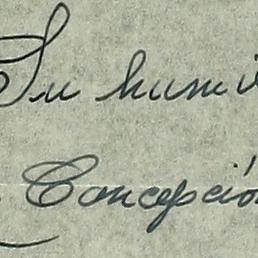 Su humi
Concepción